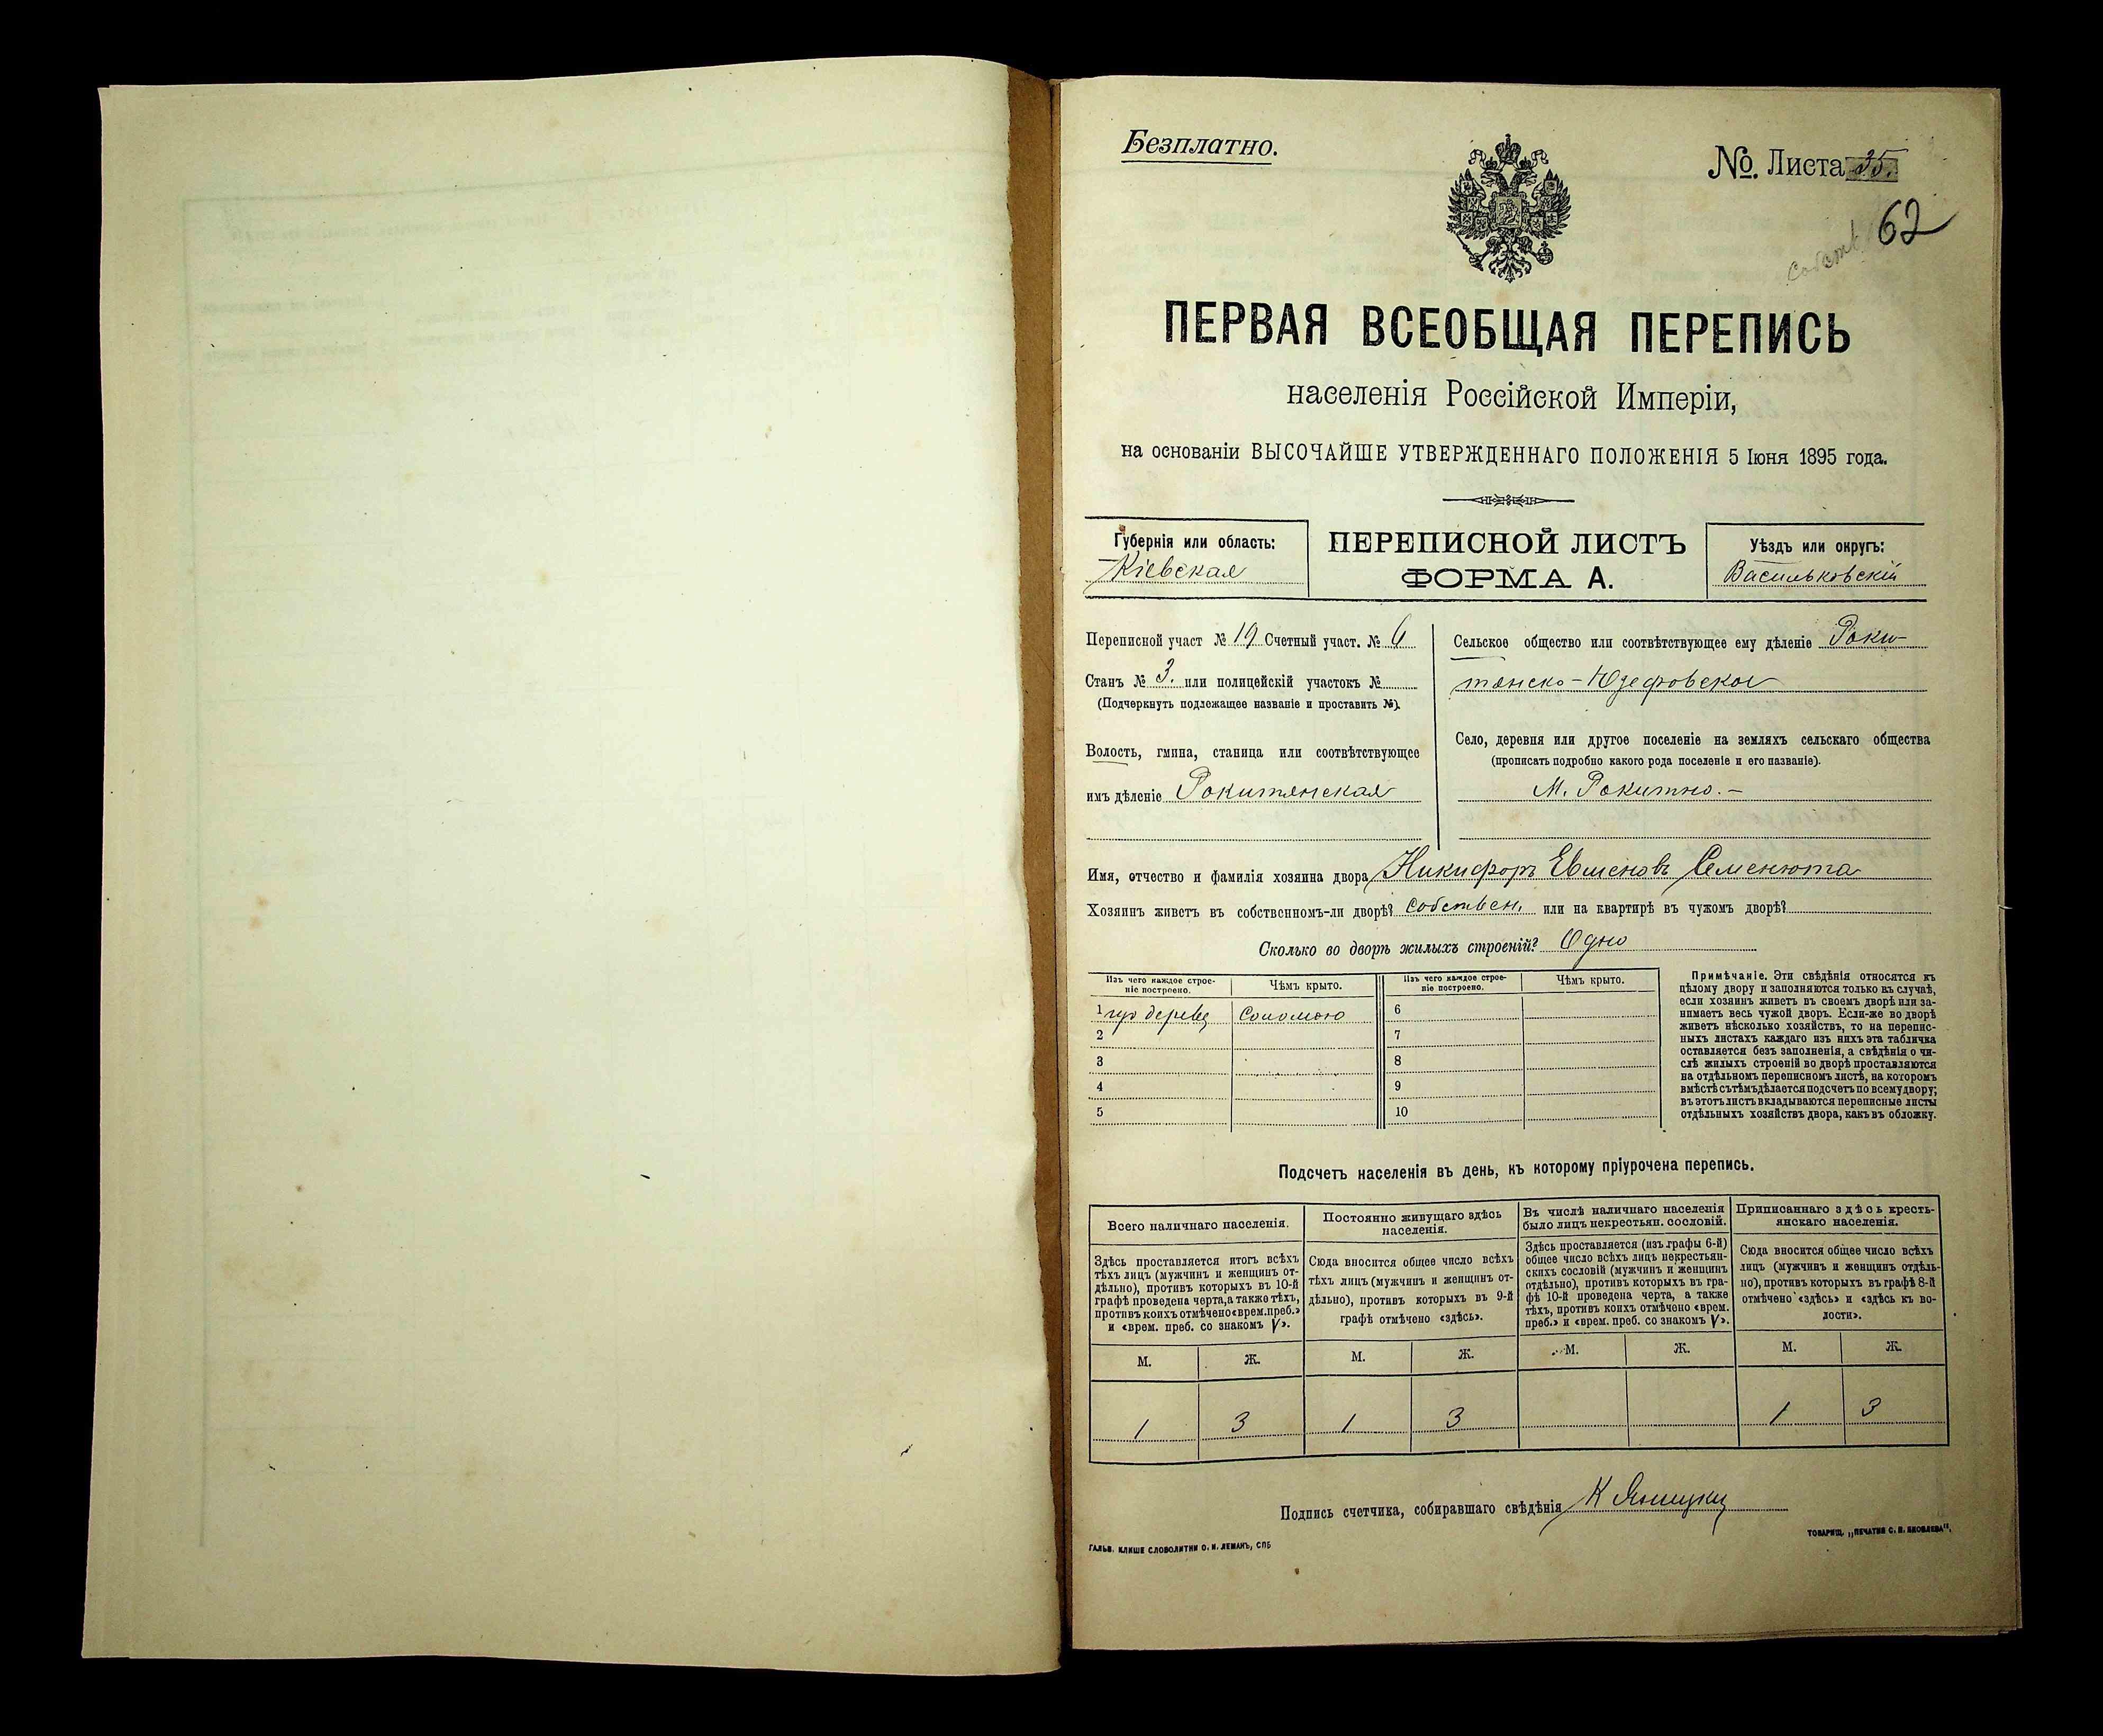 Безплатно.
№. Листа 35.
62
собств.
ПЕРВАЯ ВСЕОБЩАЯ ПЕРЕПИСЬ
населенія Россійской Имперіи,
на основаніи ВЫСОЧАЙШЕ УТВЕРЖДЕННАГО ПОЛОЖЕНІЯ 5 Іюня 1895 года.
Губернія или область:
Кіевская
ПЕРЕПИСНОЙ ЛИСТЪ
ФОРМА А.
Уѣздъ или округъ:
Васильковскій
Переписной участ № 19 Счетный участ. № 6
Станъ № 3. или полицейскій участокъ №
(Подчеркнуть подлежащее названіе и проставить №).
Волость, гмина, станица или соотвѣтствующее
имъ дѣленіе Рокитянская
Сельское общество или соотвѣтствующее ему дѣленіе Роки-
тянско-Юзефовское
Село, деревня или другое поселеніе на земляхъ сельскаго общества
(прописать подробно какого рода поселеніе и его названіе).
М. Рокитно.-
Имя, отчество и фамилія хозяина двора Никифоръ Евменовъ Семенюта
Хозяинъ живетъ въ собственномъ-ли дворѣ? Собствен. или на квартирѣ въ чужомъ дворѣ?
Сколько во дворѣ жилыхъ строеній? Одно
Изъ чего каждое строе-
ніе построено.
Чѣмъ крыто.
Изъ чего каждое строе-
ніе построено.
Чѣмъ крыто.
1 дерева Соломою 6
2 7
3 8
4 9
5 10
Примѣчаніе. Эти свѣдѣнія относятся къ
цѣлому двору и заполняются только въ случаѣ,
если хозяинъ живетъ въ своемъ дворѣ или за-
нимаетъ весь чужой дворъ. Если-же во дворѣ
живетъ нѣсколько хозяйствъ, то на перепис-
ныхъ листахъ каждаго изъ нихъ эта табличка
оставляется безъ заполненія, а свѣдѣнія о чи-
слѣ жилыхъ строеній во дворѣ проставляются
на отдѣльномъ переписномъ листѣ, на которомъ
вмѣстѣ съ тѣмъ дѣлается подсчетъ по всему двору;
въ этотъ листъ вкладываются переписные листы
отдѣльныхъ хозяйствъ двора, какъ въ обложку.
Подсчетъ населенія въ день, къ которому пріурочена перепись.
Всего наличнаго населенія.
Здѣсь проставляется итогъ всѣхъ
тѣхъ лицъ (мужчинъ и женщинъ от-
дѣльно), противъ которыхъ въ 10-й
графѣ проведена черта, а также тѣхъ,
противъ коихъ отмѣчено «врем. преб.»
и «врем. преб. со знакомъ V».
Постоянно живущаго здѣсь
населенія.
Сюда вносится общее число всѣхъ
тѣхъ лицъ (мужчинъ и женщинъ от-
дѣльно), противъ которыхъ въ 9-й
графѣ отмѣчено «здѣсь».
Въ числѣ наличнаго населенія
было лицъ некрестьян. сословій.
Здѣсь проставляется (изъ графы 6-й)
общее число всѣхъ лицъ некрестьян-
скихъ сословій (мужчинъ и женщинъ
отдѣльно), противъ которыхъ въ гра-
фѣ 10-й проведена черта, а также
тѣхъ, противъ коихъ отмѣчено «врем.
преб.» и «врем. преб. со знакомъ V».
Приписаннаго здѣсь кресть-
янскаго населенія.
Сюда вносится общее число всѣхъ
лицъ (мужчинъ и женщинъ отдѣль-
но), противъ которыхъ въ графѣ 8-й
отмѣчено «здѣсь» и «здѣсь къ во-
лости».
М. Ж. М. Ж. М. Ж. М. Ж.
1 3 1 3 1 3
Подпись счетчика, собиравшаго свѣдѣнія К
ГАЛЬВ. КЛИШЕ СЛОВОЛИТНИ О. И. ЛЕМАНЪ, СПБ
ТОВАРИЩ. „ПЕЧАТНЯ С. П. ЯКОВЛЕВА".